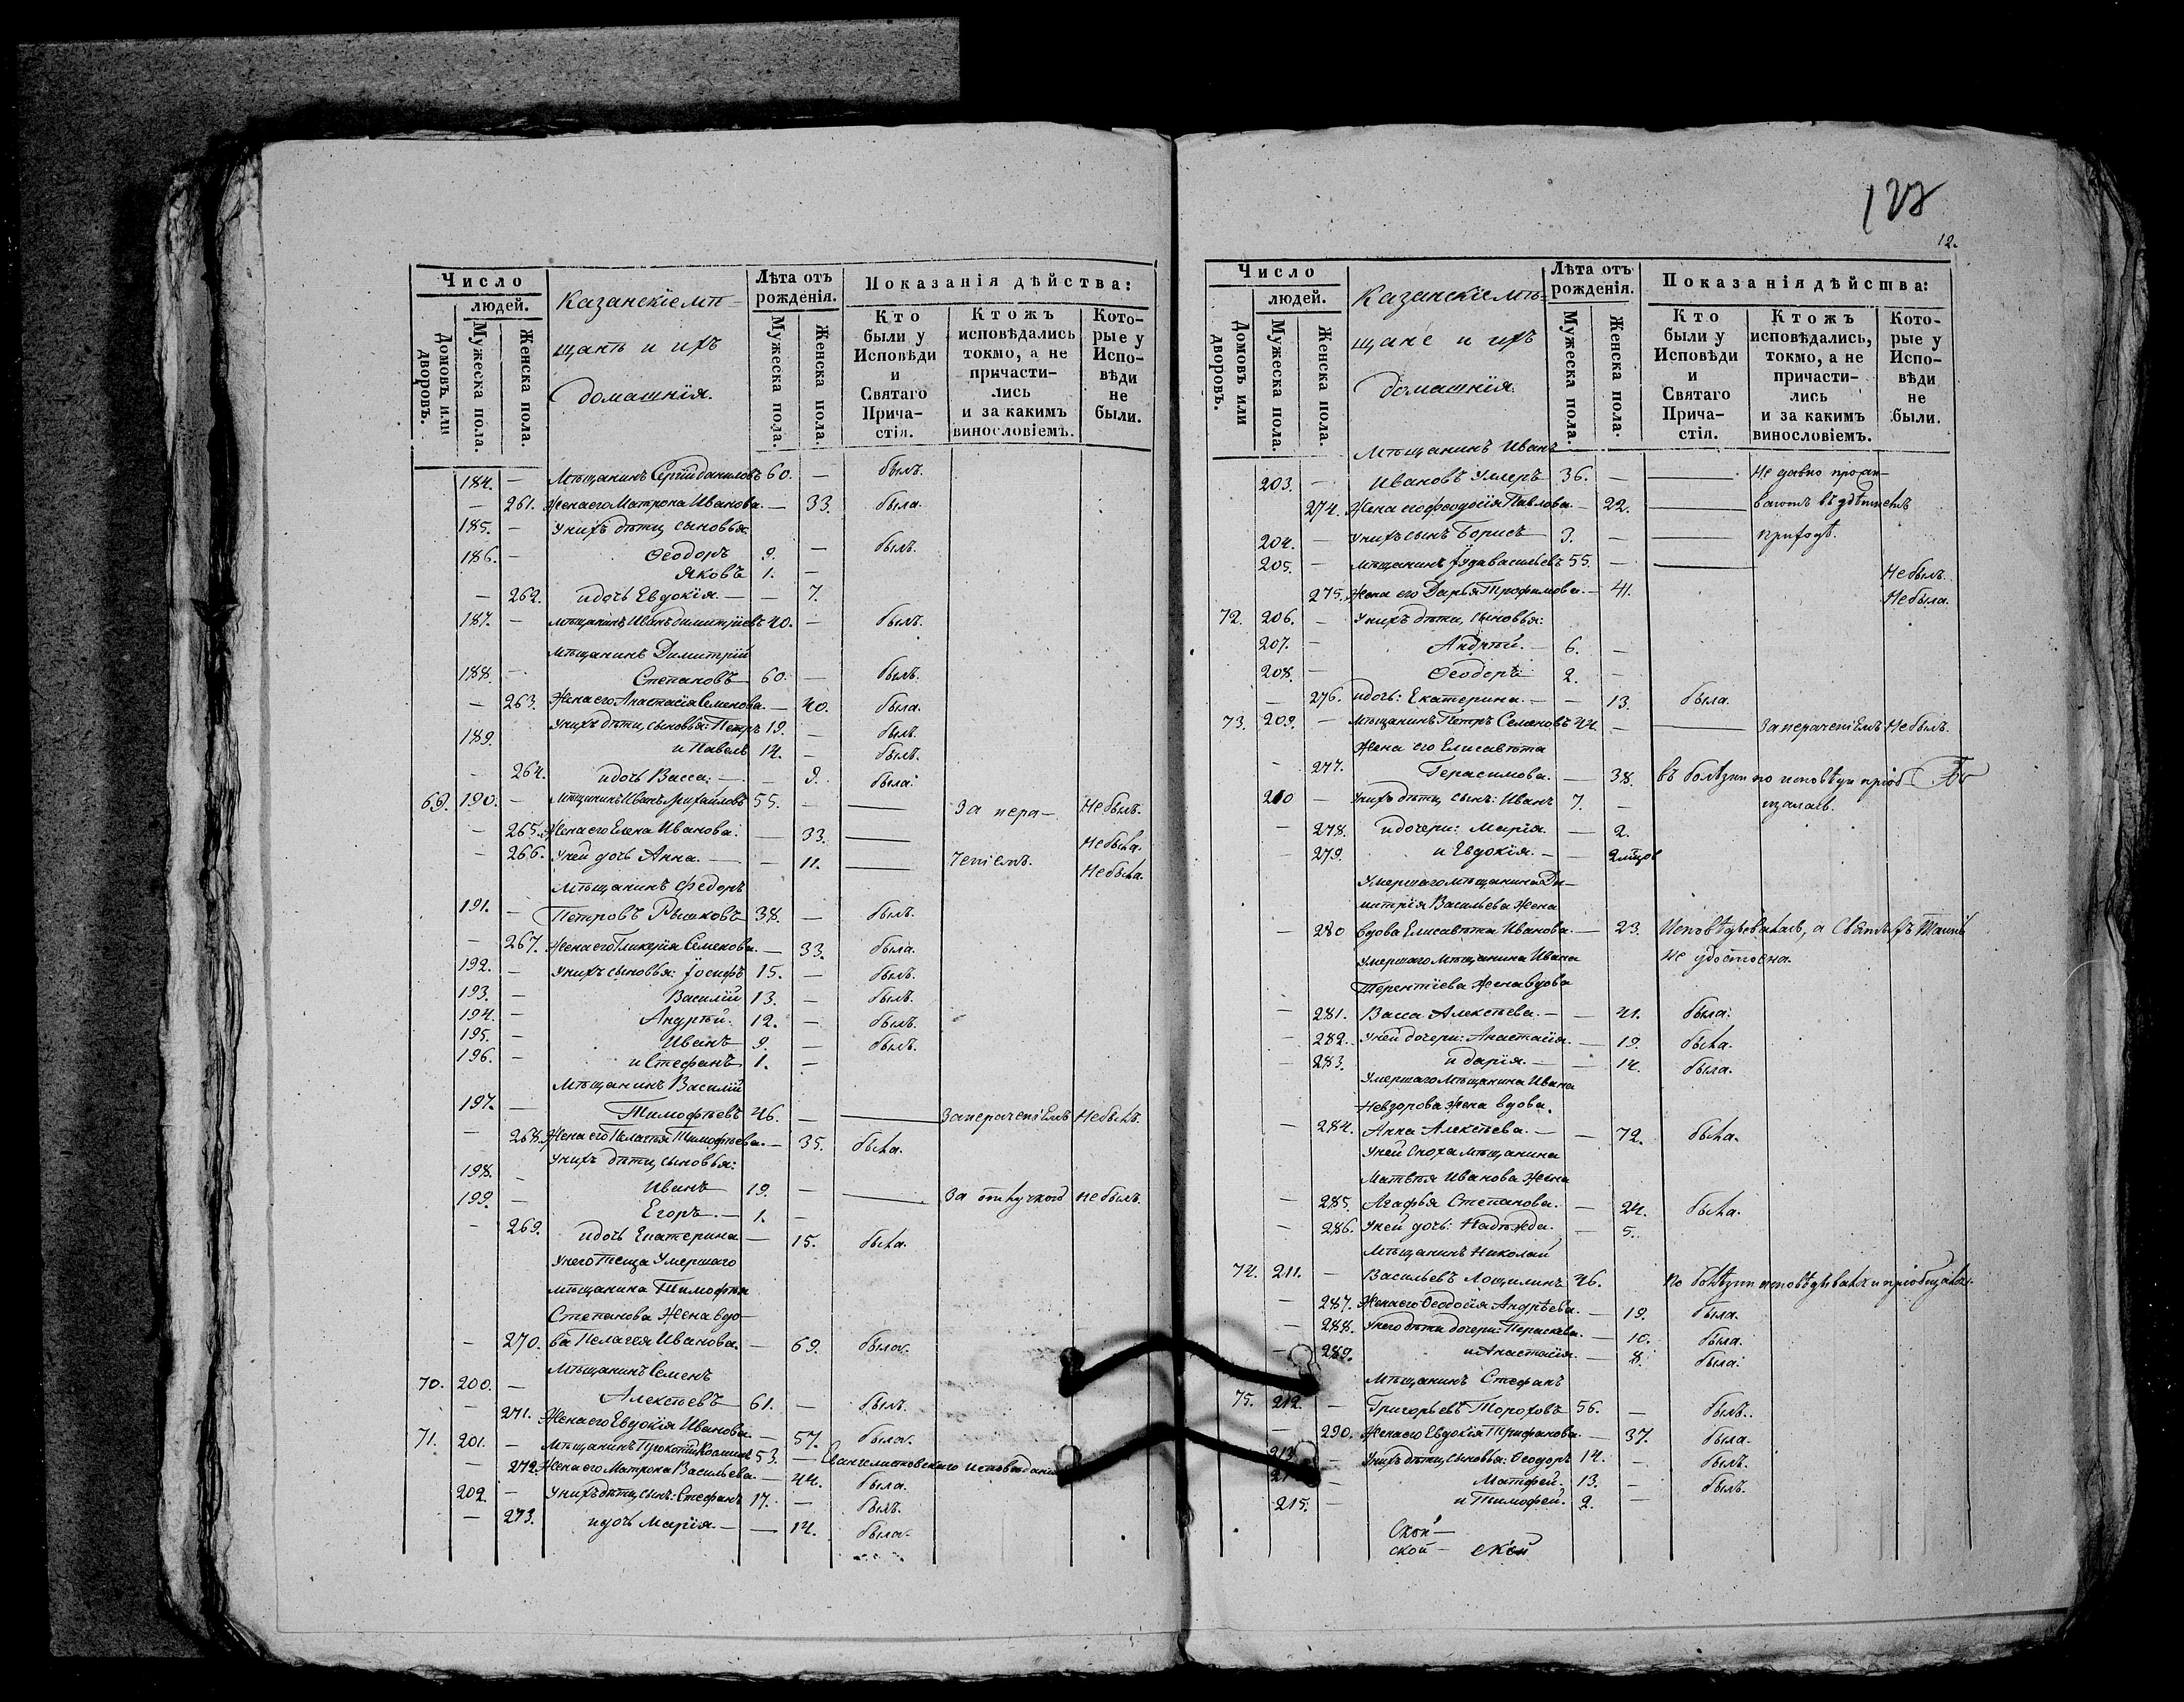 Число
людей.
Домовъ или дворовъ.
Мужеска пола.
Женска пола.
Казанскіе мѣ-
щанѣ и ихъ
домашнія.
Лѣта отъ рожденія.
Мужеска пола.
Женска пола.
Показанія дѣйства:
Кто были у Исповѣди и Святаго Прича- стія.
Ктожъ исповѣдались токмо, а не причасти- лись и за какимъ винословіемъ.
Кото- рые у Испо- вѣди не были.
184. — Мѣщанинъ Сергій Даниловъ 60. — былъ.
— 261. Жена его Матрона Иванова. — 33. была.
185. — У нихъ дѣти, сыновья:
186. — Ѳеодоръ 9. — былъ.
Яковъ 1. —
— 262. и дочь Евдокія. — — 7.
187. — Мѣщанинъ Иванъ Димитріевъ 40. — былъ.
Мѣщанинъ Димитрій
188. — Степановъ 60. — былъ.
— 263. Жена его Анастасія Семенова. — 40. была.
189. У нихъ дѣти, сыновья: Петръ 19. — былъ.
и Павелъ 14. — былъ.
— 264. и дочь Васса. — — 9. была.
69. 190. — Мѣщанинъ Иванъ Михайловъ 55. — — За нера- Не былъ.
— 265. Жена его Елена Иванова. — 33. — Не была.
— 266. У ней дочь Анна. — — 11. — ченіемъ. Не была.
Мѣщанинъ Федоръ
191. — Петровъ Рышковъ 38. — былъ.
— 267. Жена его Гликерія Семенова. — 33. была.
192. — У нихъ сыновья: Іосифъ 15. — былъ.
193. — Василій 13. — былъ.
194. — Андрѣй. 12. — былъ.
195. — Иванъ 9. — былъ.
196. — и Стефанъ 1. —
Мѣщанинъ Василій
197. — Тимофѣевъ 46. — — За нераченіемъ Не былъ.
— 268. Жена его Пелагѣя Тимофѣева. — 35. была.
У нихъ дѣти, сыновья:
198. — Иванъ 19. — — За отлучкою не былъ.
199. Егоръ. — 1. —
— 269. и дочь Екатерина — 15. была.
У него теща умершаго
мѣщанина Тимофѣя
Степанова жена вдо-
— 270. ва Пелагея Иванова. — 69. была.
Мѣщанинъ Семенъ
70. 200. — Алексѣевъ 61. — былъ.
— 271. Жена его Евдокія Иванова. — 57. была.
71. 201. — Мѣщанинъ 53. — Евангелистовскаго исповѣданія
— 272. Жена его Матрона Васильева. — 44. была.
202. — У нихъ дѣти, сынъ: Стефанъ 17. — былъ.
— 273. и дочь Марія. — — 14. была.
12.
Число
людей.
Домовъ или дворовъ.
Мужеска пола.
Женска пола.
Казанскіе мѣ-
щане и ихъ
домашнія.
Лѣта отъ рожденія.
Мужеска пола.
Женска пола.
Показанія дѣйства:
Кто были у Исповѣди и Святаго Прича- стія.
Ктожъ исповѣдались, токмо, а не причасти- лись и за какимъ винословіемъ.
Кото- рые у Испо- вѣди не были.
Мѣщанинъ Иванъ
203. — Ивановъ умеръ 36. — — Не давно
274. Жена его Феодосія Павлова. — 22. —
204. — У нихъ сынъ Борисъ 3. — — приходѣ.
205. — Мѣщанинъ Іуда Васильевъ 55. — — Не былъ.
275. Жена его Дарья Трофимова. — 41. Не была.
72. 206. — У нихъ дѣти, сыновья:
207. — Андрѣй. — 6. —
208. — Ѳеодоръ 2. —
— 276. и дочь: Екатерина. — — 13. была.
73. 209. — Мѣщанинъ Петръ Семеновъ 44. — — За нераченіемъ Не былъ.
Жена его Елисавѣта
— 277. Герасимова. — — 38. въ болѣзни по исповѣди пріоб-
210 — У нихъ дѣти, сынъ: Иванъ 7. — щалась.
— 278. и дочери: Марія. — 2.
— 279. и Евдокія. — — 2 мѣцов
Умершаго мѣщанина Ди-
митрія Васильева жена
— 280 вдова Елисавѣта Иванова. — 23. Исповѣдывалась, а Святыхъ Таинъ
Умершаго мѣщанина Ивана не удостоена.
Терентіева жена вдова
— 281. Васса Алексѣева. — — 41. была.
— 282. У ней дочери: Анастасія. — 19. была.
— 283. и Дарія. — — 14. была.
Умершаго мѣщанина Ивана
Невзорова жена вдова.
— 284. Анна Алексѣева. — — 72. была.
У ней сноха мѣщанина
Матвѣя Иванова жена
— 285. Агафья Степанова. — 24. была.
— 286. У ней дочь: Надѣжда. — 5.
Мѣщанинъ Николай
74. 211. — Васильевъ Лощилинъ 46. По болѣзни исповѣдывался и пріобщался.
— 287. Жена его Ѳеодосія Андрѣева. — 19. была.
— 288. У него дѣти дочери: Параскева. — 10. была.
— 289. и Анастасія. — 8. была.
Мѣщанинъ Стефанъ
75. 212. — Григорьевъ Тороховъ 56. — былъ.
— 290. Жена его Евдокія Трифанова. — 37. была.
213. — У нихъ дѣти, сыновья: Ѳеодоръ 14. — былъ.
— Матфей. 13. — былъ.
215. — и Тимофей. 2. —